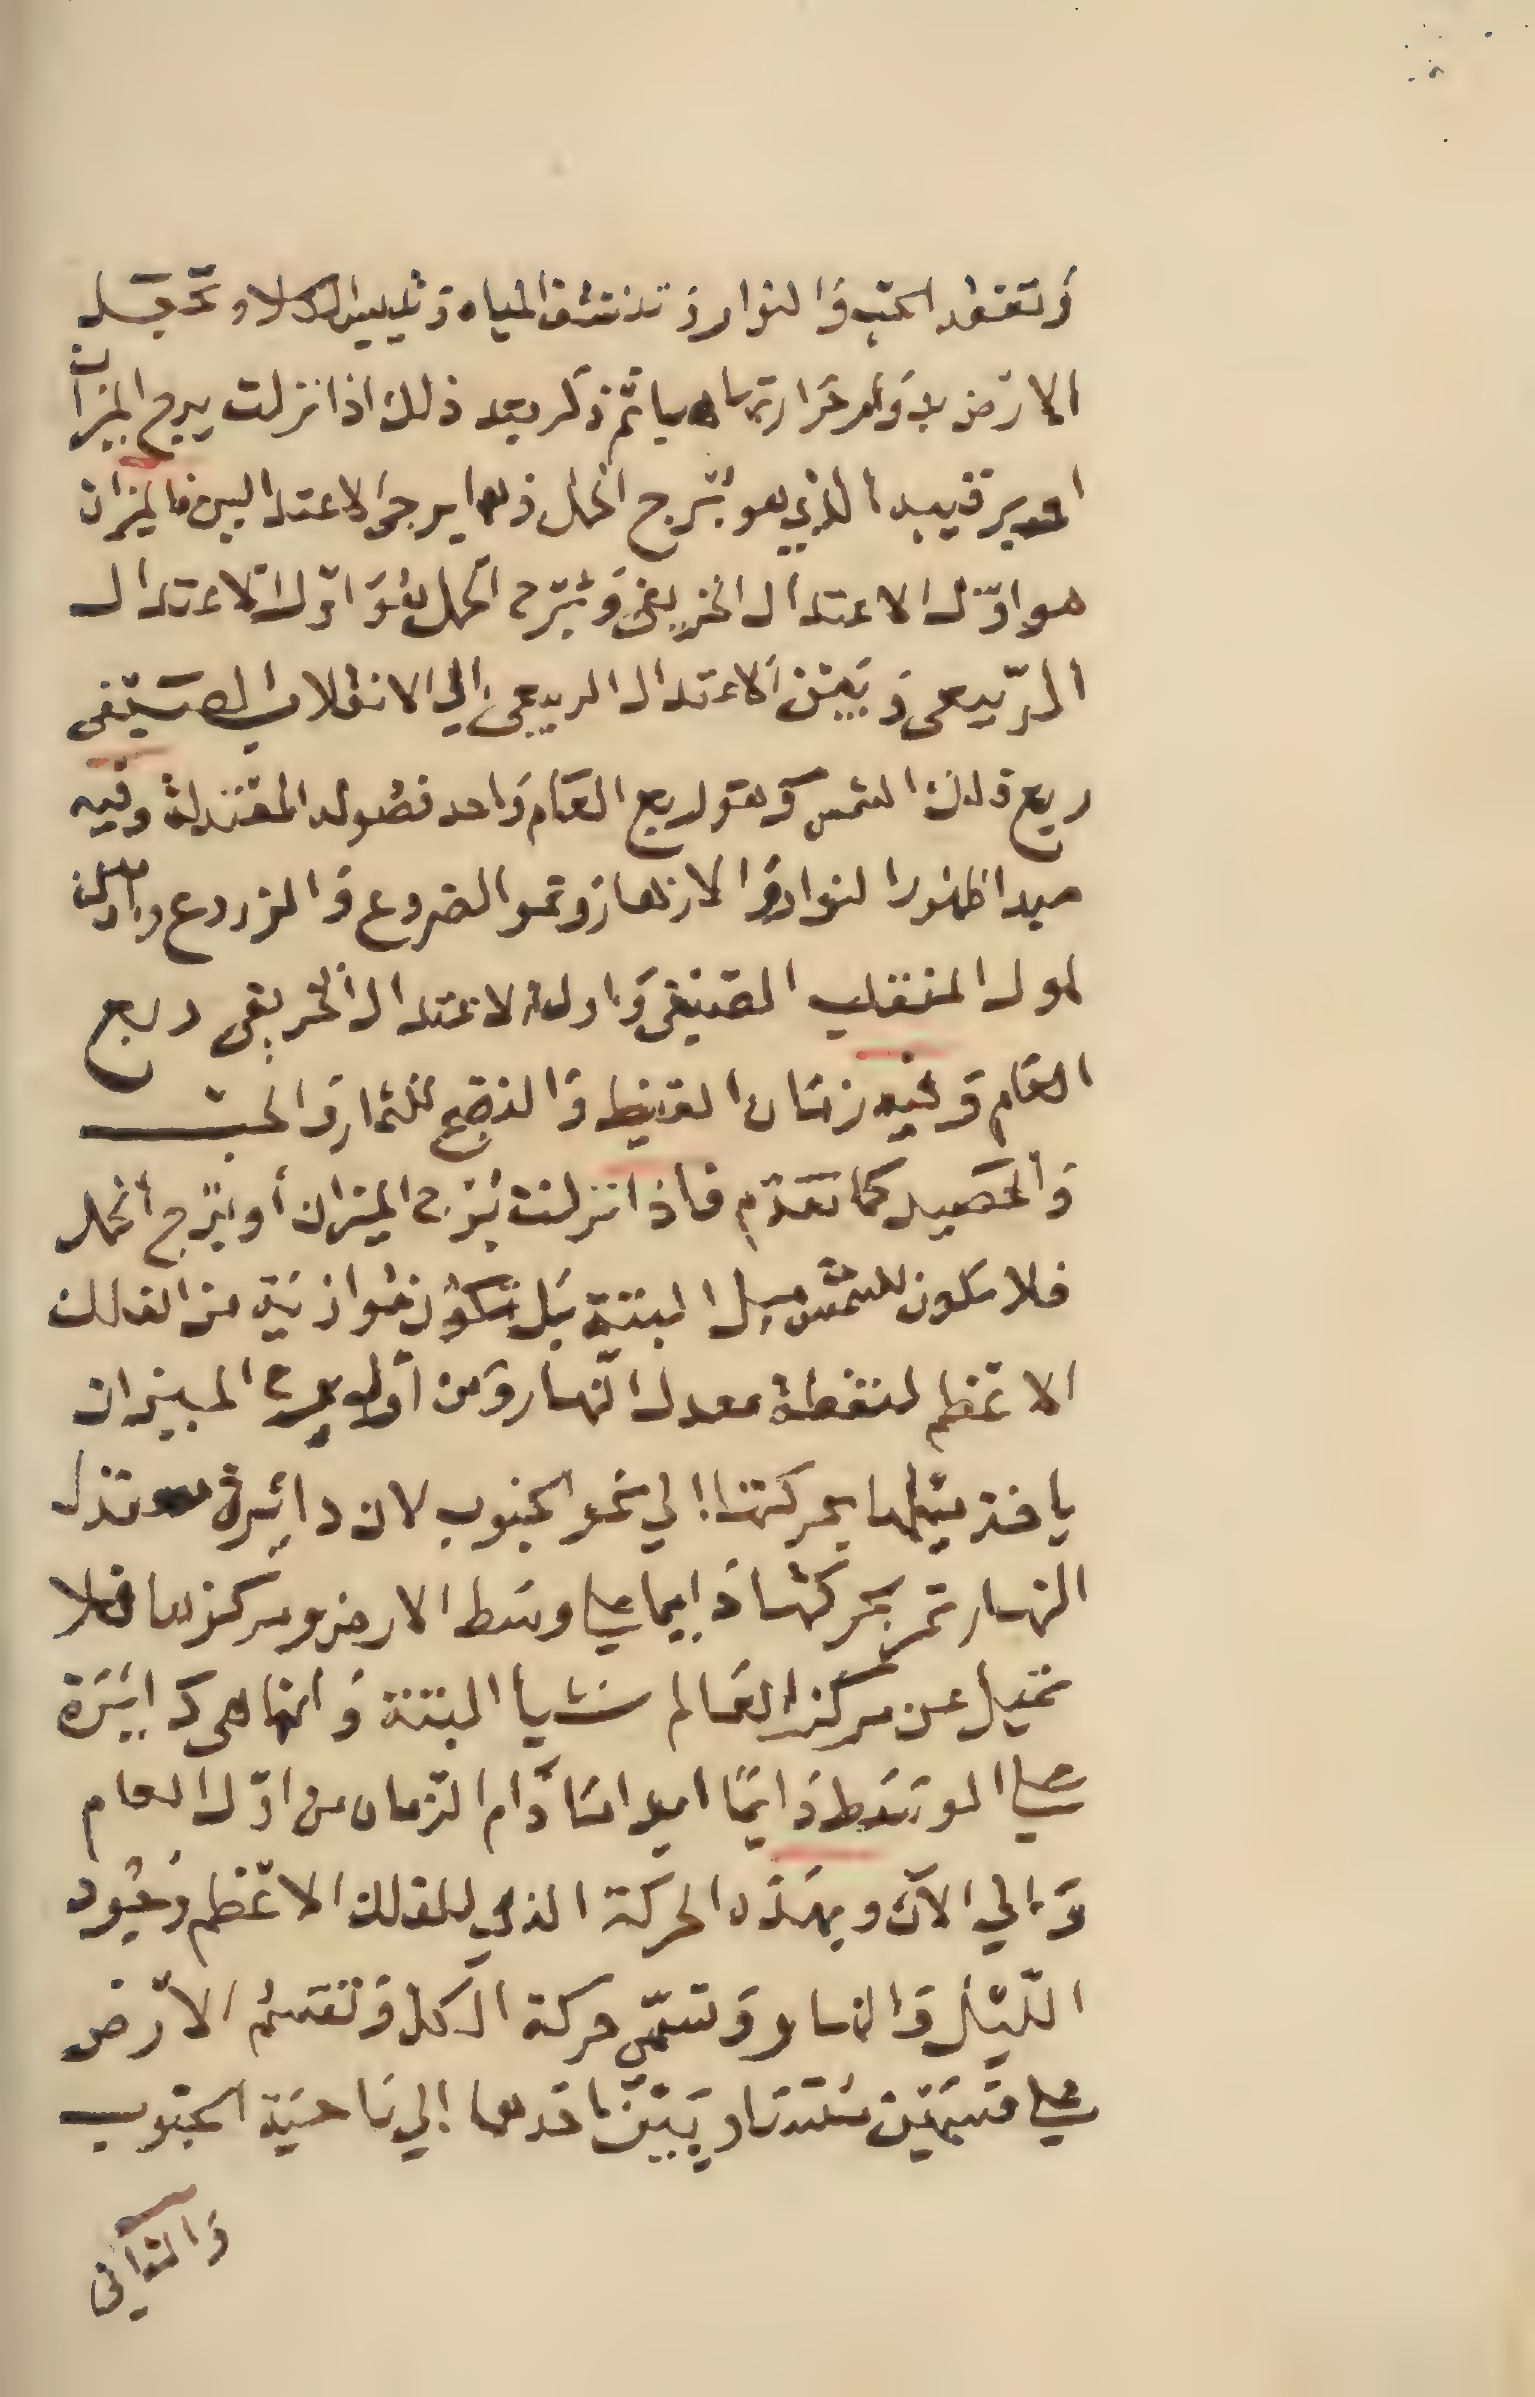 وتعقد الحب والنوار وتنشق المياه وتيبس الكلاء وتحصل
الارض بدوام حرارتها ثم ذكر بعد ذلك اذا نزلت برج الميزان
الذي هو برج الحمل ذهما برجي الاعتدالين فالميزان
هو اوّل الاعتدال الخريفى وبرج الحمل هو اوّل الاعتدال
الرّبيعى وبين الاعتدال الربيعى الي الانقلاب الصيفى
ربع فلك الشمس وهو ربع العام واحد فصوله المعتدلة وفيه
مبدا ظهور النوار والازهار ونمو الضروع والزروع ومن
اول المنقلب الصيفى واول الاعتدال الخريفى ربع
العام وفيه زمان القيظ والنضج للثمار والحب
والحصيد كما تقدّم فاذا نزلت برج الميزان أو برج الحمل
فلا يكون للشمس ميل البتة بل تكون موازية من الفلك
الاعظم لنقطة معدل النهار ومن أول برج الميزان
ياخذ ميلها بحركتها الي نحو الجنوب لان دائرة معتدل
النهار تمر بحركتها دايما علي وسط الارض ومركزها فلا
تميل عن مركز العالم شيا البتة وانما هى دايرة
علي الوسط دايمًا ابدا ما دام الزمان من اوّل العام
والي الآن وبهذه الحركة الذي للفلك الاعظم وجود
اللّيل والنهار وتسمّى حركة الكل وتقسم الأرض
علي قسمين متساويين احدهما الي ناحية الجنوب
والثانى